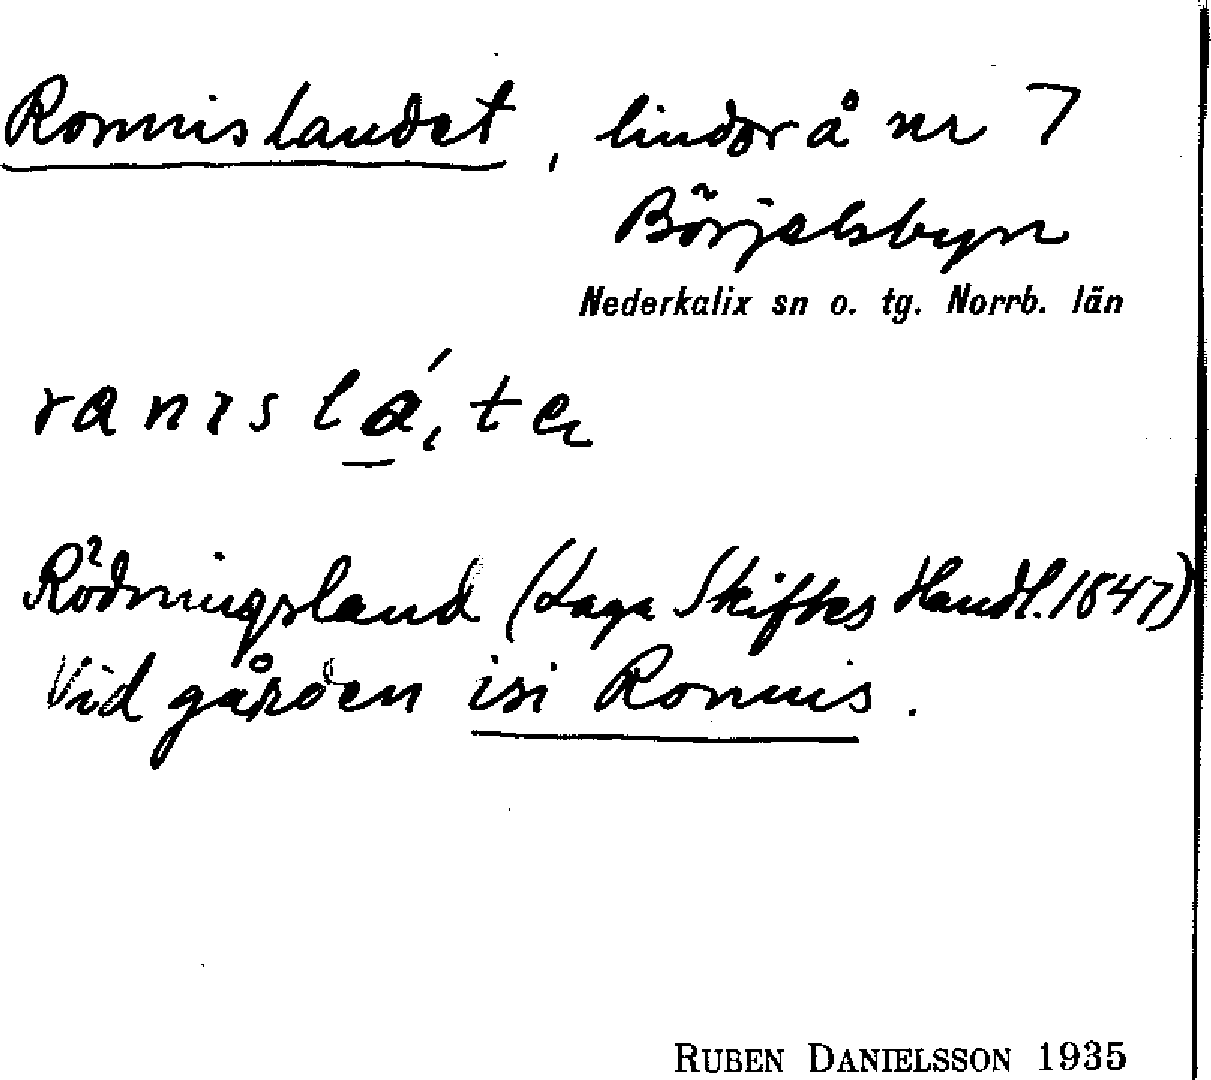 Ronnislandet, lindor å nr 7
Börjelsbyn
Nederkalix sn o. tg. Norrb. län
ranıslá,te
Rödningsland (Laga Skiftes Handl. 1847)
Vid gården isi Ronnis.
RUBEN DANIELSSON 1935